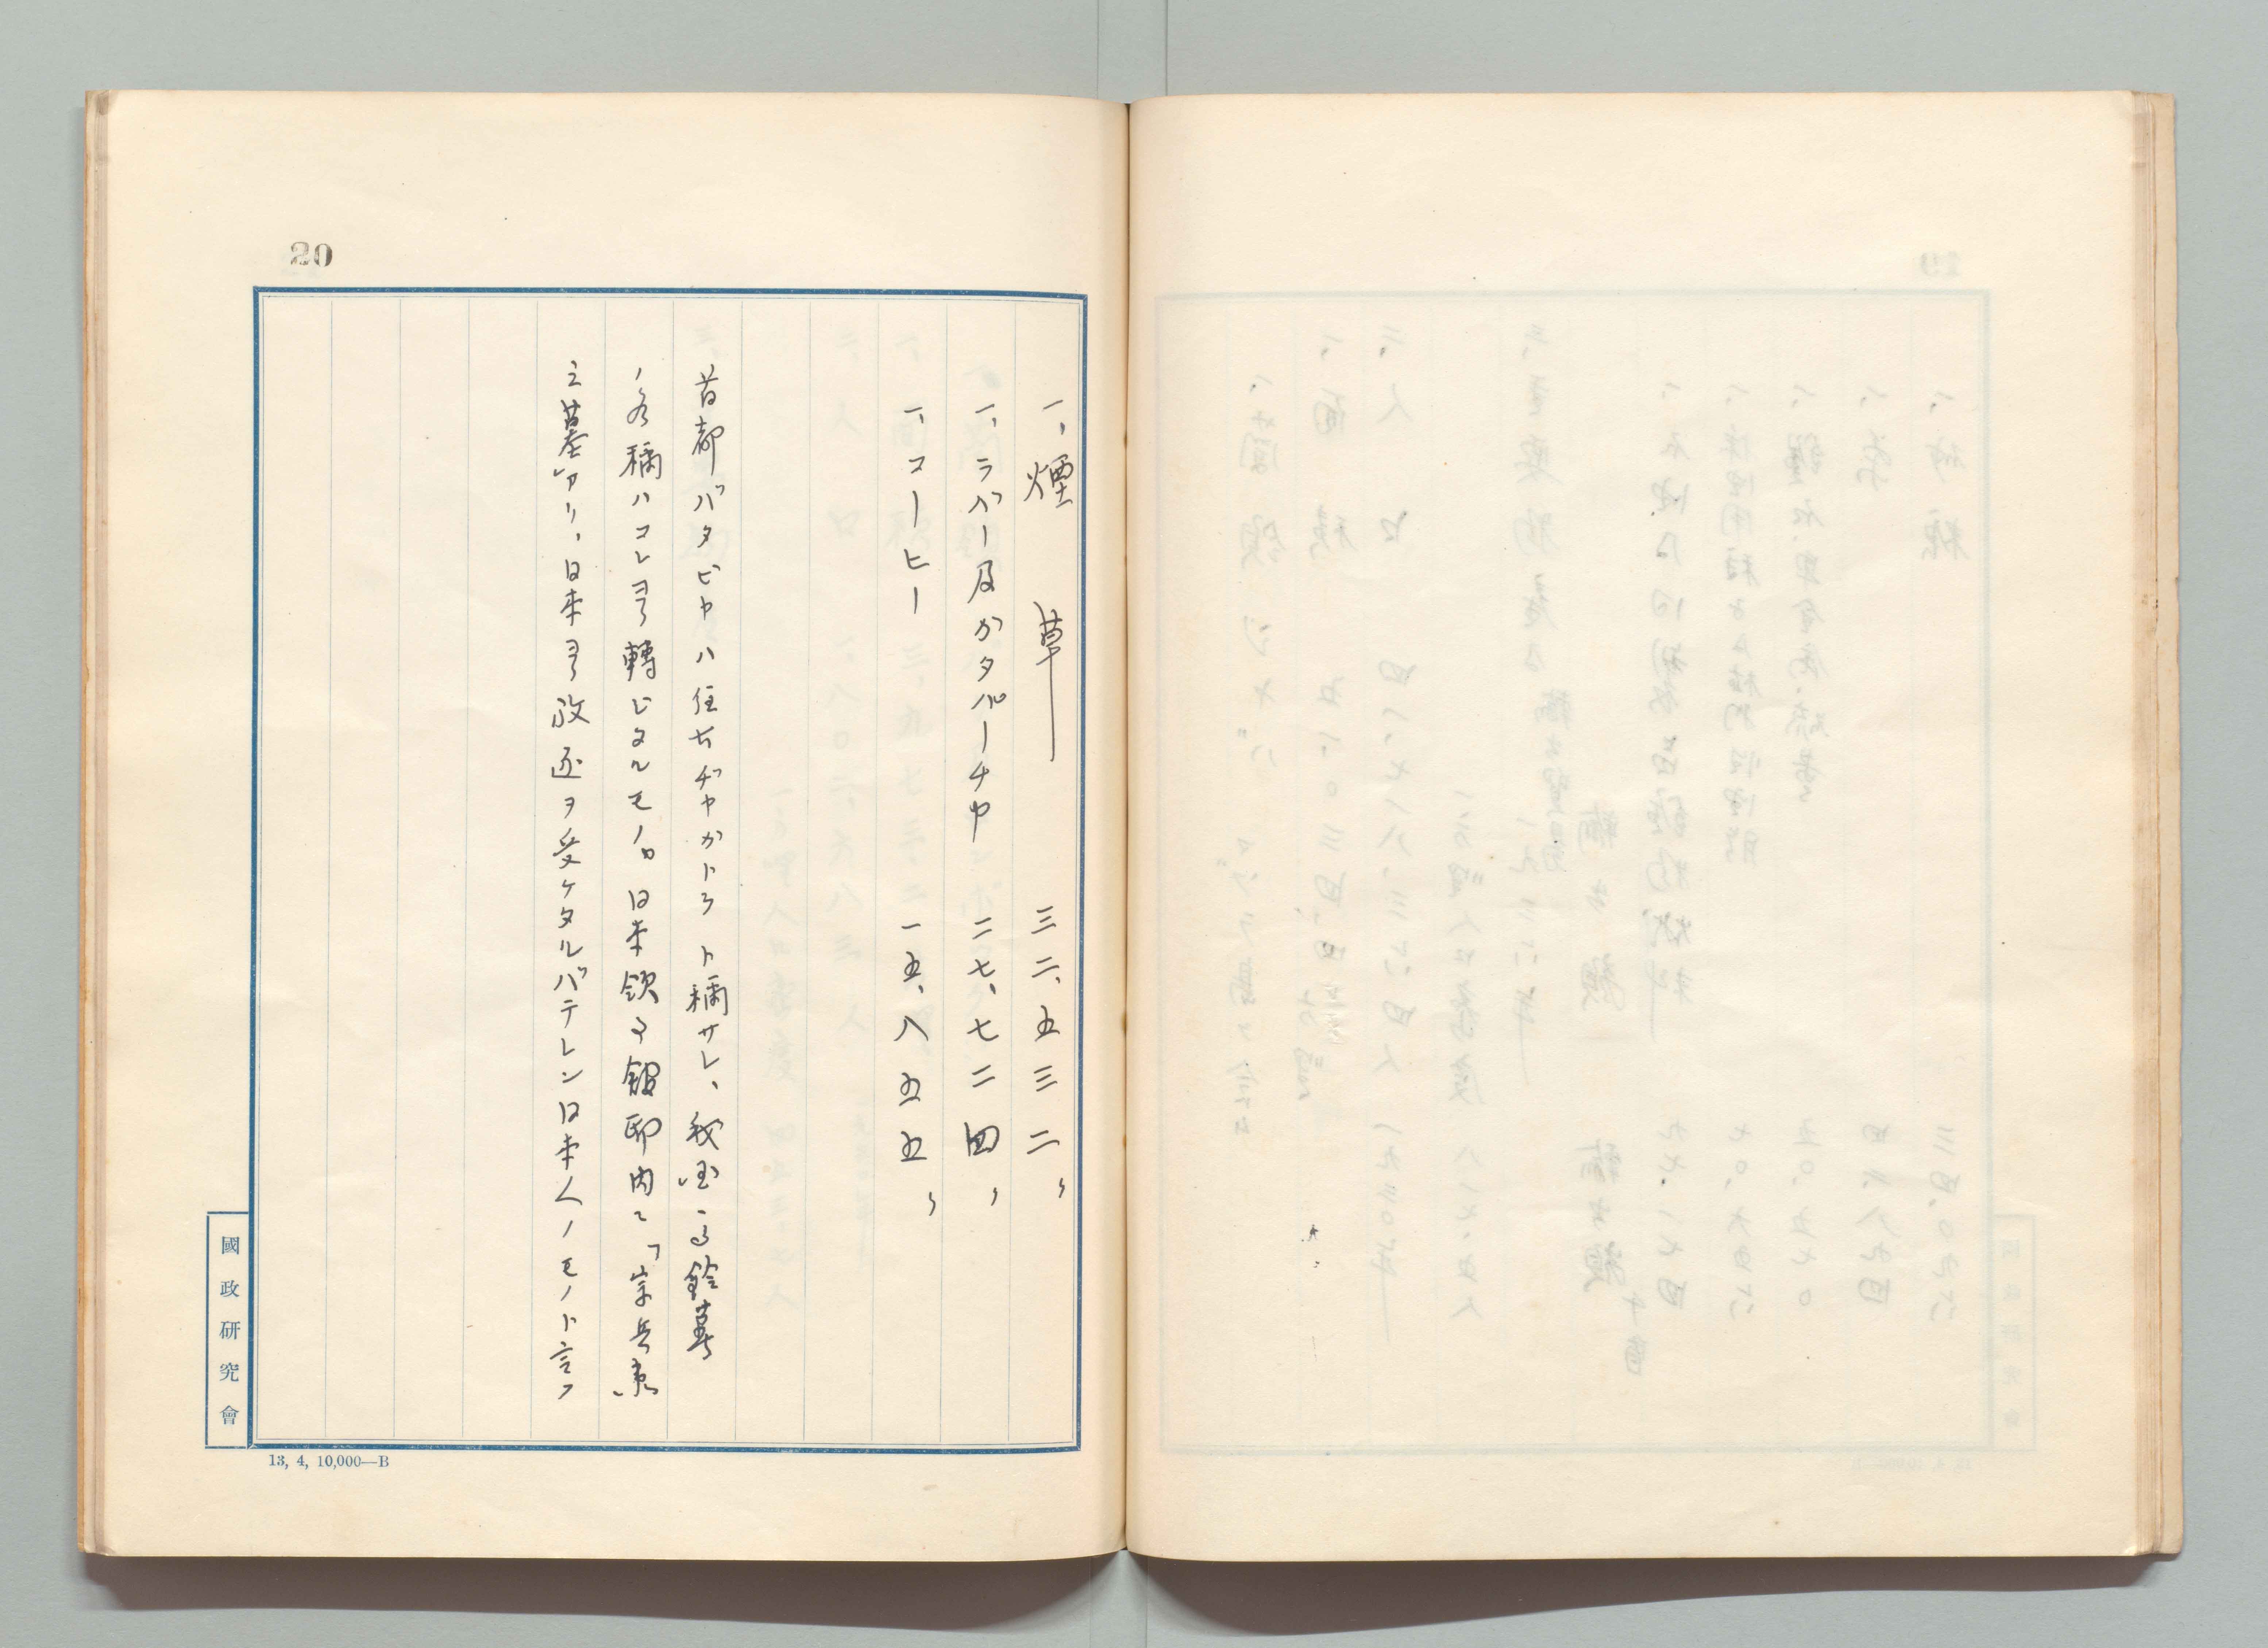 20
一、煙草 三二、五三二、
一、ラバー及ガタパーチヤ 二七、七二四、
一、コーヒー 一五、八五五、
首都バタビヤハ往古ヂヤガトラト稱サレ、我国馬鈴薯
ノ名稱ハコレヨリ轉ジタルモノカ 日本領事館邸内ニ「宗兵衛
之墓」アリ、日本ヨリ放逐ヲ受ケタルバテレン日本人ノモノト言フ
國政研究會
13, 4, 10,000—B